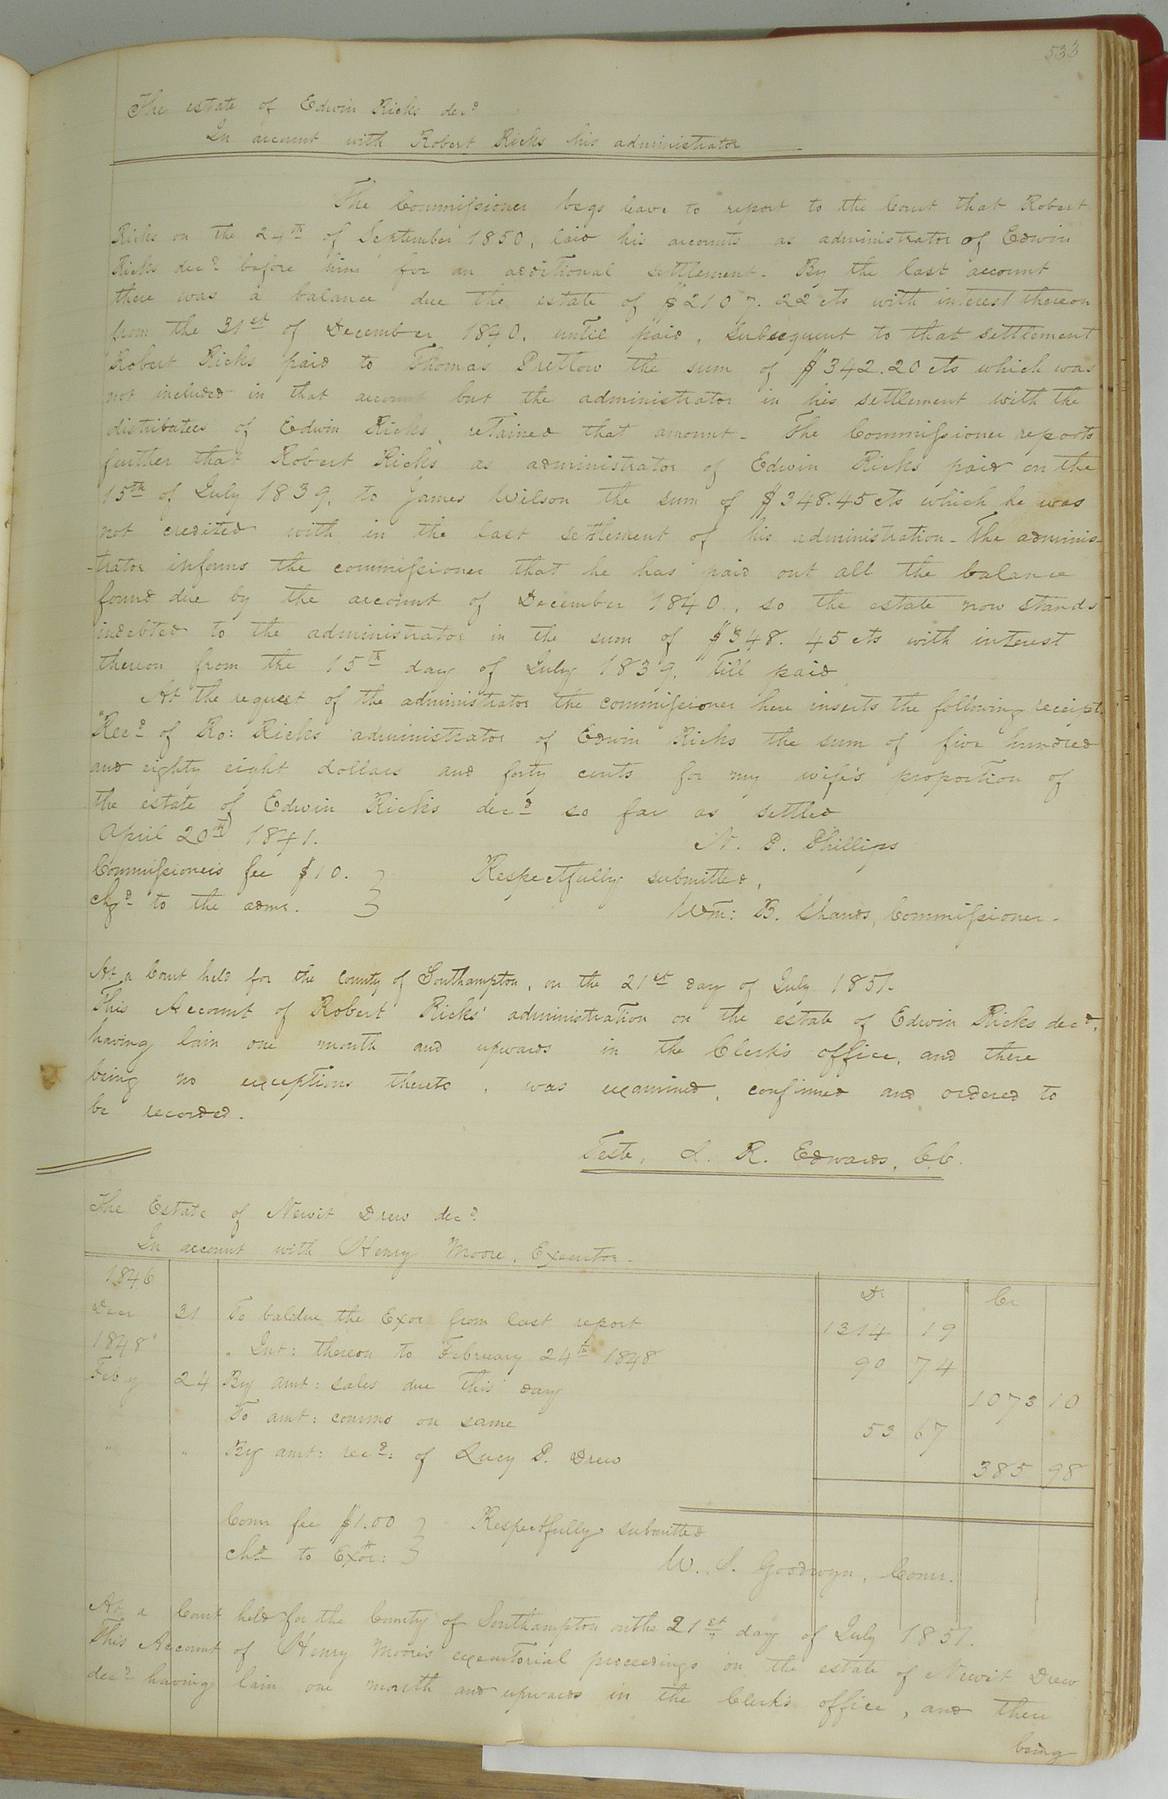 533
The estate of Edwin Ricks decd
In account with Robert Ricks his administrator
The Commissioner begs leave to report to the Court that Robert
Ricks on the 24th of September 1850, laid his accounts as administrator of Edwin
Ricks decd before him for an additional settlement - By the last account
there was a balance due the estate of $2107.22 cts with interest thereon
from the 31st of December 1840. until paid, subsequent to that settlement
Robert Ricks paid to Thomas Pretlow the sum of $342.20 cts which was
not included in that account but the administrator in his settlement with the
distributees of Edwin Ricks, retained that amount - The Commissioner reports
further that Robert Ricks as administrator of Edwin Ricks paid on the
15th of July 1839, to James Wilson the sum of $348.45 cts which he was
not credited with in the last settlement of his administration - The adminis-
-trator informs the commissioner that he has paid out all the balance
found due by the account of December 1840., so the estate now stands
indebted to the administrator in the sum of $348.45 cts with interest
thereon from the 15th day of July 1839, till paid
At the request of the administrator the commissioner here inserts the following receipt.
"Recd of Ro: Ricks administrator of Edwin Ricks the sum of five hundred
and eighty eight dollars and forty cents for my wife's proportion of
the estate of Edwin Ricks decd so far as settled
April 20th 1841. N. D. Phillips
Commissioneis fee $10. } Respectfully submitted,
chgd to the admr. } Wm: B. Shands, Commissioner -
At a Court held for the County of Southampton, on the 21st day of July 1851.
This Account of Robert Ricks' administration on the estate of Edwin Ricks decd,
having lain one month and upwards in the Clerk's office, and there
being no exceptions thereto, was examined, confirmed and ordered to
be recorded.
Teste, L. R. Edwards, C.C.
The Estate of Newit Drew decd
In account with Henry Moore, Executor -
1846 Dr Cr
Decr 31 To baldue the Exor from last report 1314 19
1848 " Int: thereon to February 24th 1848 90 74
Feby 24 By amt: sales due this day 1073 10
To amt: comms on same 53 67
" " By amt: recd: of Lucy P. Drew 385 98
Comr fee $1.00 } Respectfully submitted
chd to Exor: } W. S. Goodwyn, Comr.
At a Court held for the County of Southampton on the 21st day of July 1851.
This Account of Henry Moore's executorial proceedings on the estate of Newit Drew
decd having lain one month and upwards in the Clerk's office, and there
being